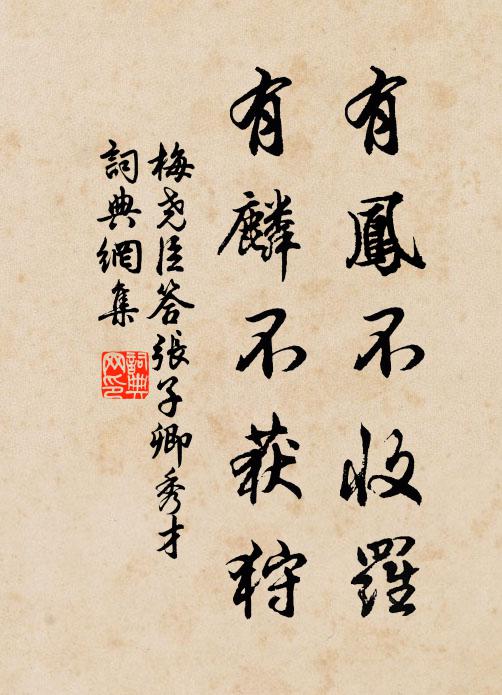 有鳳不收羅
有麟不获狩
梅尧臣答張子卿秀才
詞典網集
詞典
网印